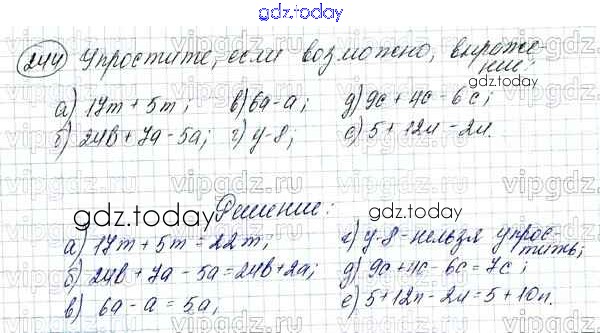 gdz.today
244 Упростите, если возможно, выраже-
ние:
а) 17m + 5m; в) 6a - a; д) 9c + 4c - 6c;
б) 24b + 7a - 5a; г) y - 8; е) 5 + 12n - 2n.
gdz.today
Решение:
gdz.today
gdz.today
а) 17m + 5m = 22m; г) y - 8 = нельзя упрос-
тить;
б) 24b + 7a - 5a = 24b + 2a; д) 9c + 4c - 6c = 7c;
в) 6a - a = 5a; е) 5 + 12n - 2n = 5 + 10n.
gdz.today
gdz.today